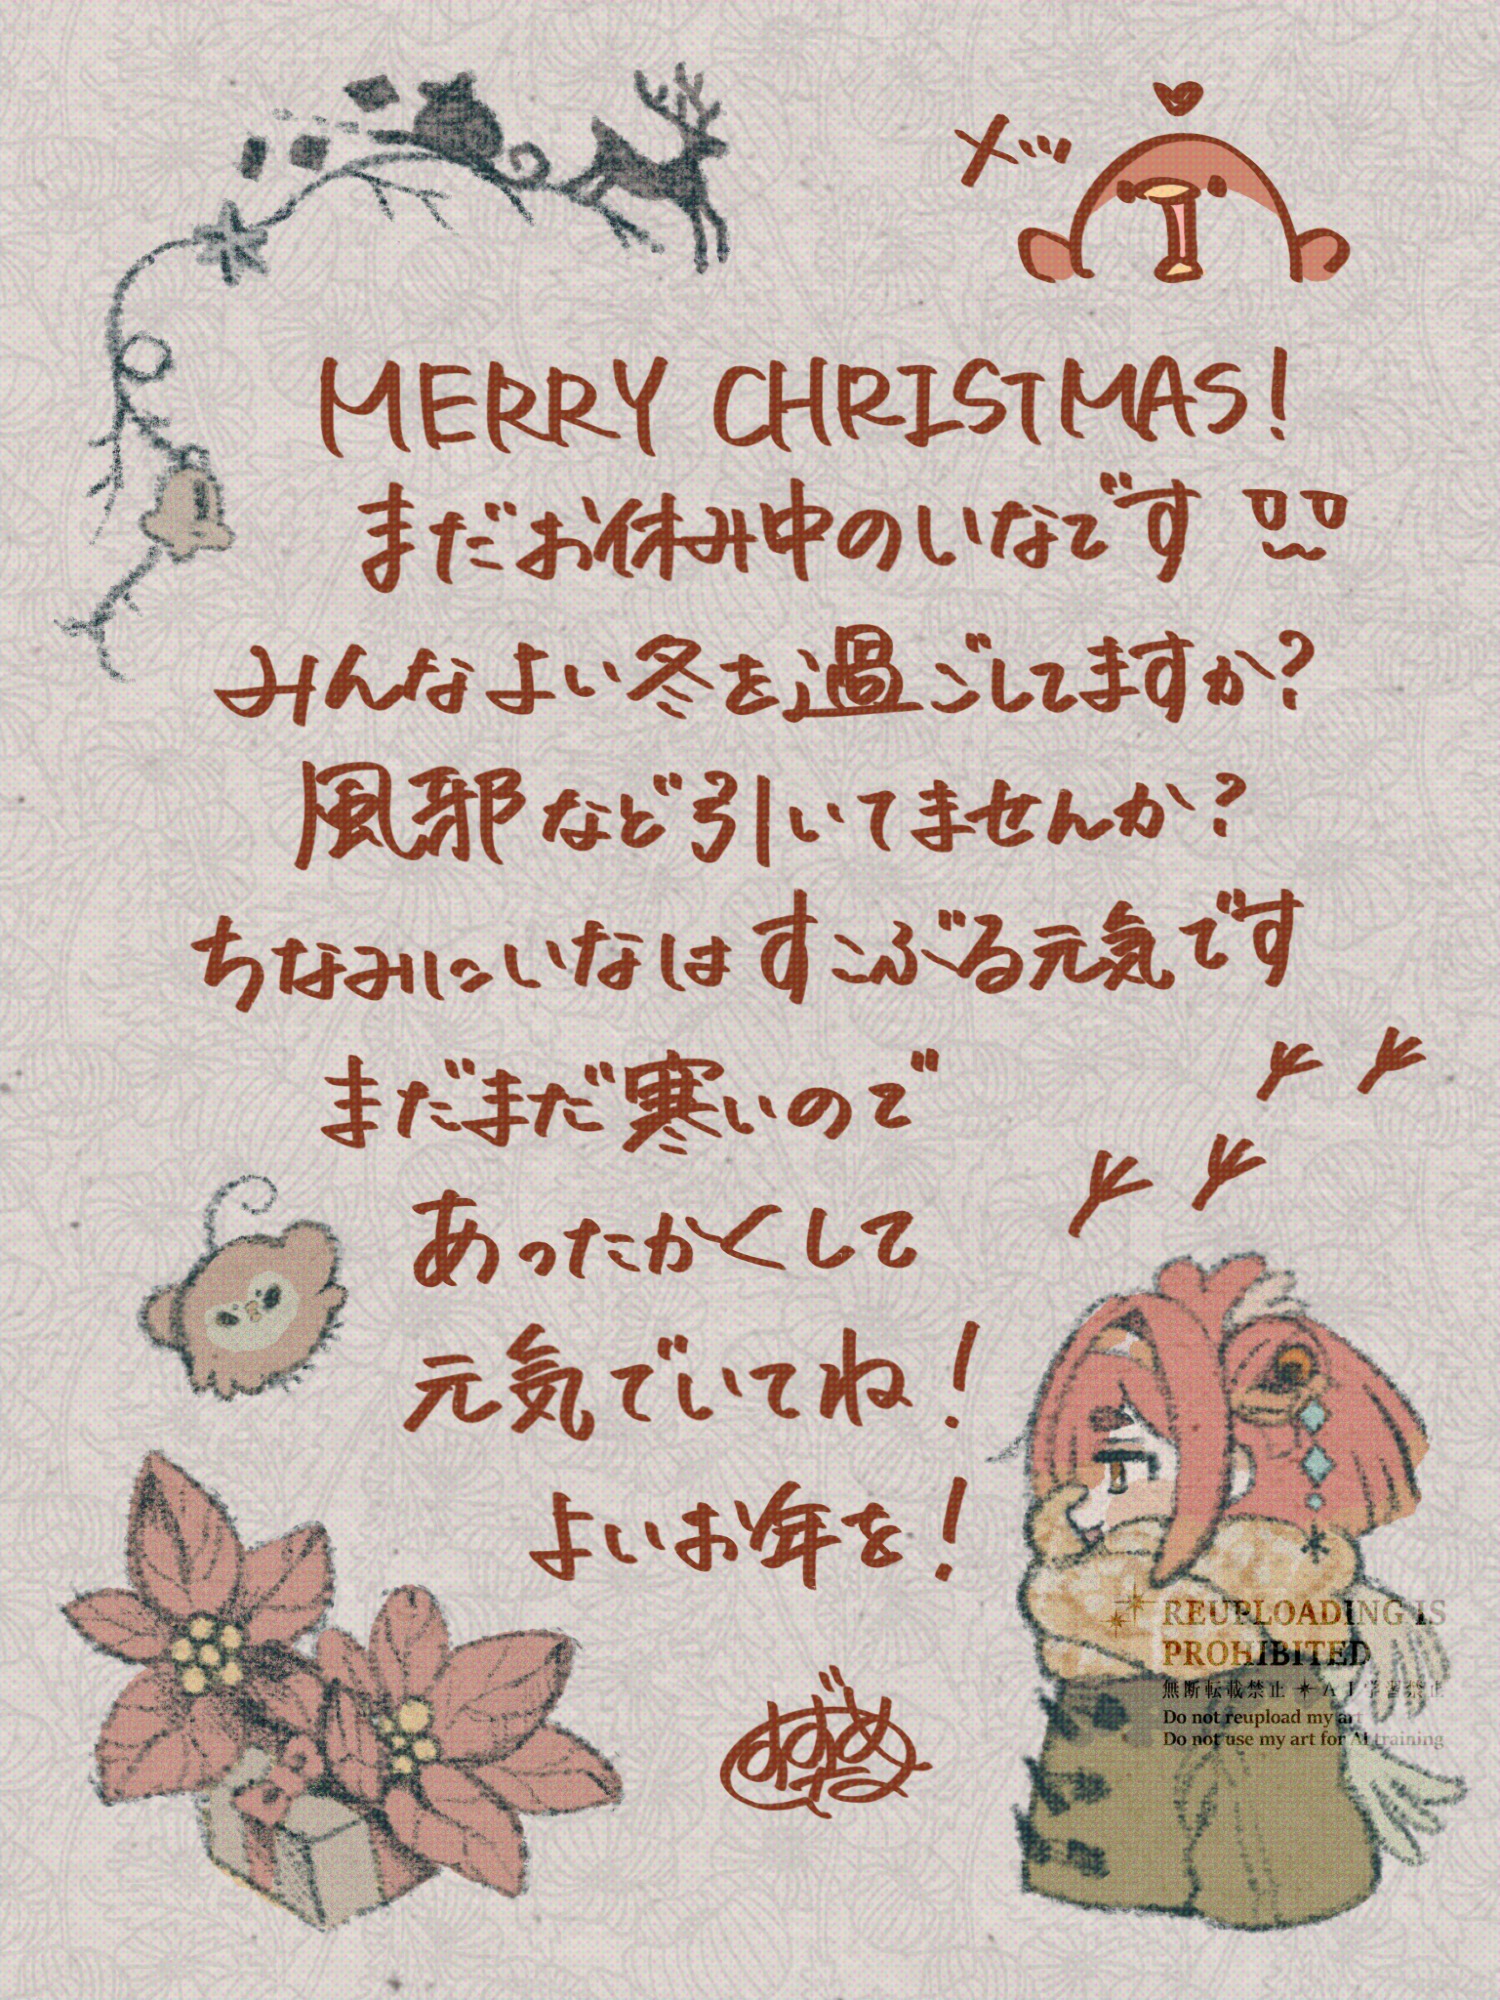 メッ
MERRY CHRISTMAS!
まだお休み中のいなです
みんなよい冬を過ごしてますか?
風邪など引いてませんか?
ちなみにいなはすこぶる元気です
まだまだ寒いので
あったかくして
元気でいてね!
よいお年を!
REUPLOADING IS
PROHIBITED
無断転載禁止 AI学習禁止
Do not reupload my art
Do not use my art for AI training